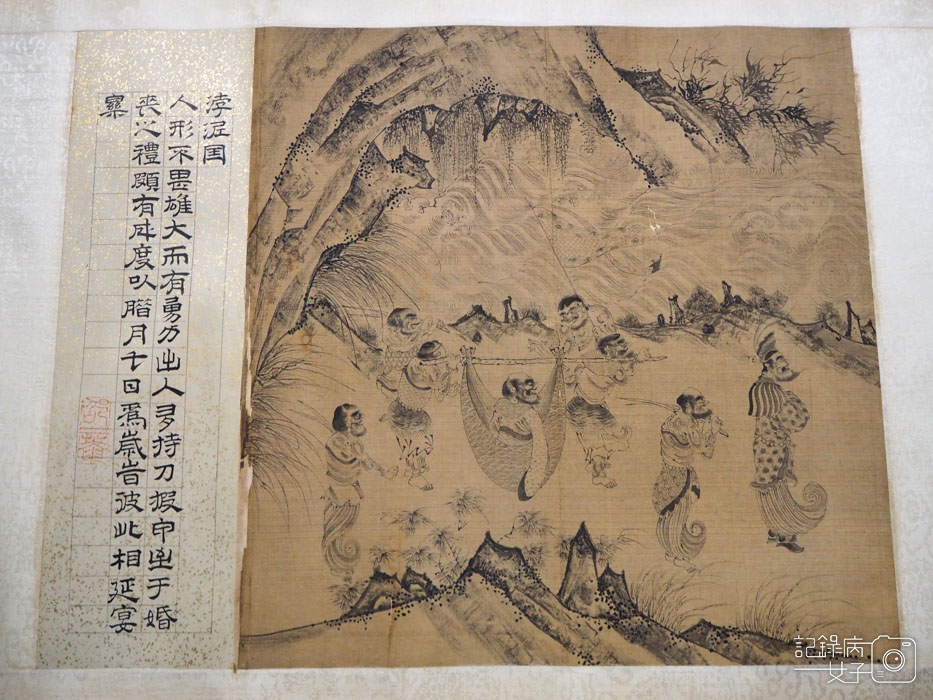 浡泥国
人形不甚雄大而有勇力出入多持刀被甲至于婚
喪之禮頗有制度以臘月七日爲歲旹彼此相延宴
樂
記錄病
女子